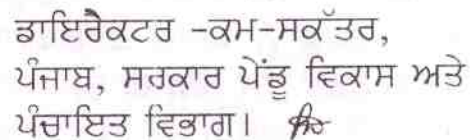 ਡਾਇਰੈਕਟਰ -ਕਮ-ਸਕੱਤਰ,
ਪੰਜਾਬ, ਸਰਕਾਰ ਪੇਂਡੂ ਵਿਕਾਸ ਅਤੇ
ਪੰਚਾਇਤ ਵਿਭਾਗ।